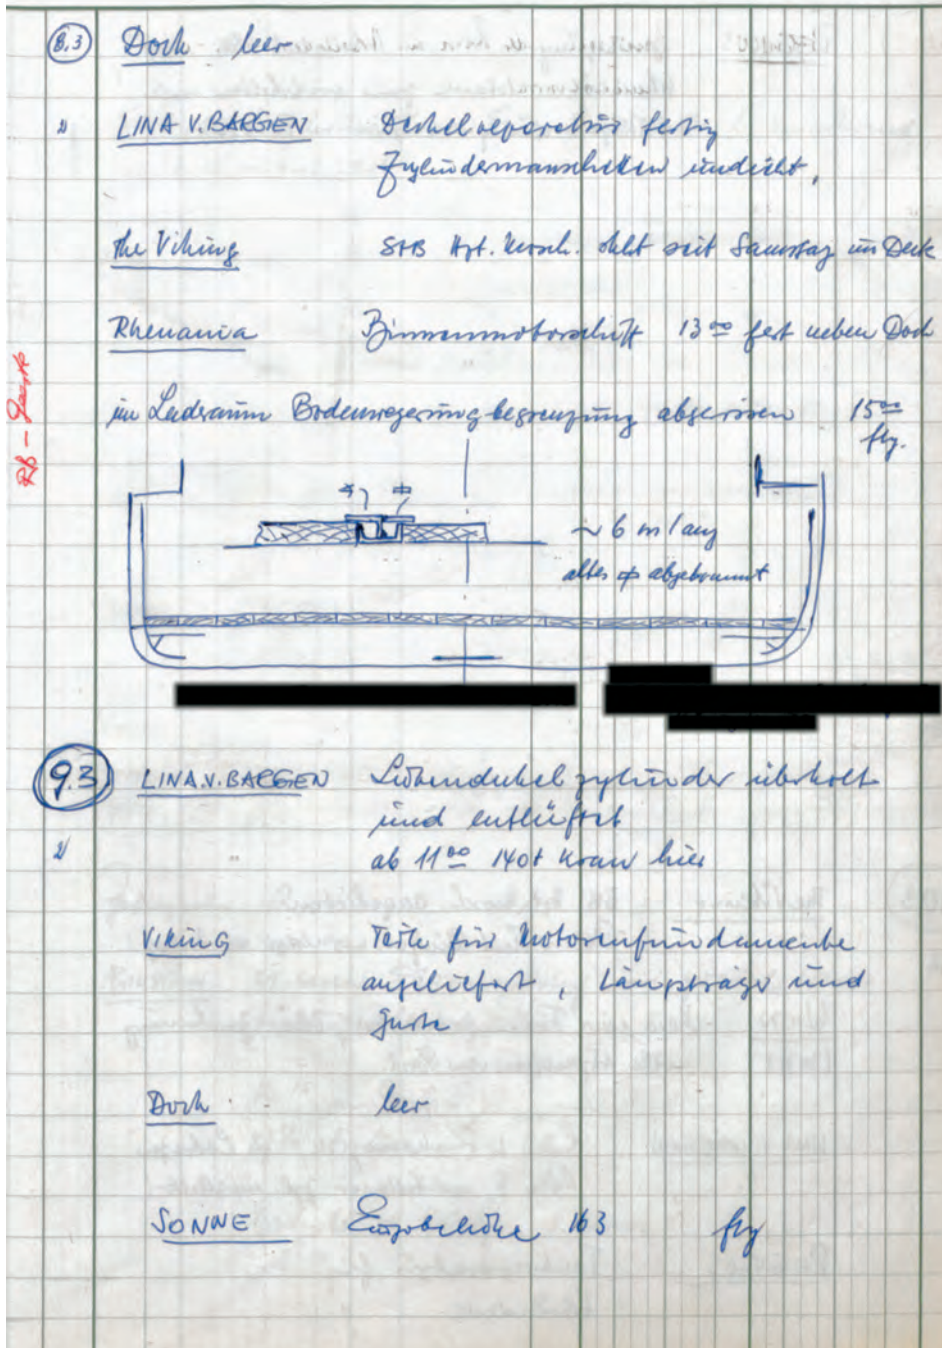 8.3 Dock leer
LINA V. BARGEN Deckelreparatur fertig
Zylindermanschetten undicht,
the Viking STB Hpt. Masch. steht seit Samstag im Deck
Rhenania Binnenmotorschiff 13⁰⁰ fest neben Dock
im Laderaum Bodenwegerungbegrenzung abgerissen 15⁰⁰
ftg.
RB -
~ 6 m lang
altes abgebrannt
9.3 LINA.V.BARGEN Lukendeckelzylinder überholt
und entlüftet
ab 11⁰⁰ 140t Kran hier
VIKING Teile für Motorenfundamente
angeliefert, Längsträger und
Gurte
Dock leer
SONNE 163 ftg